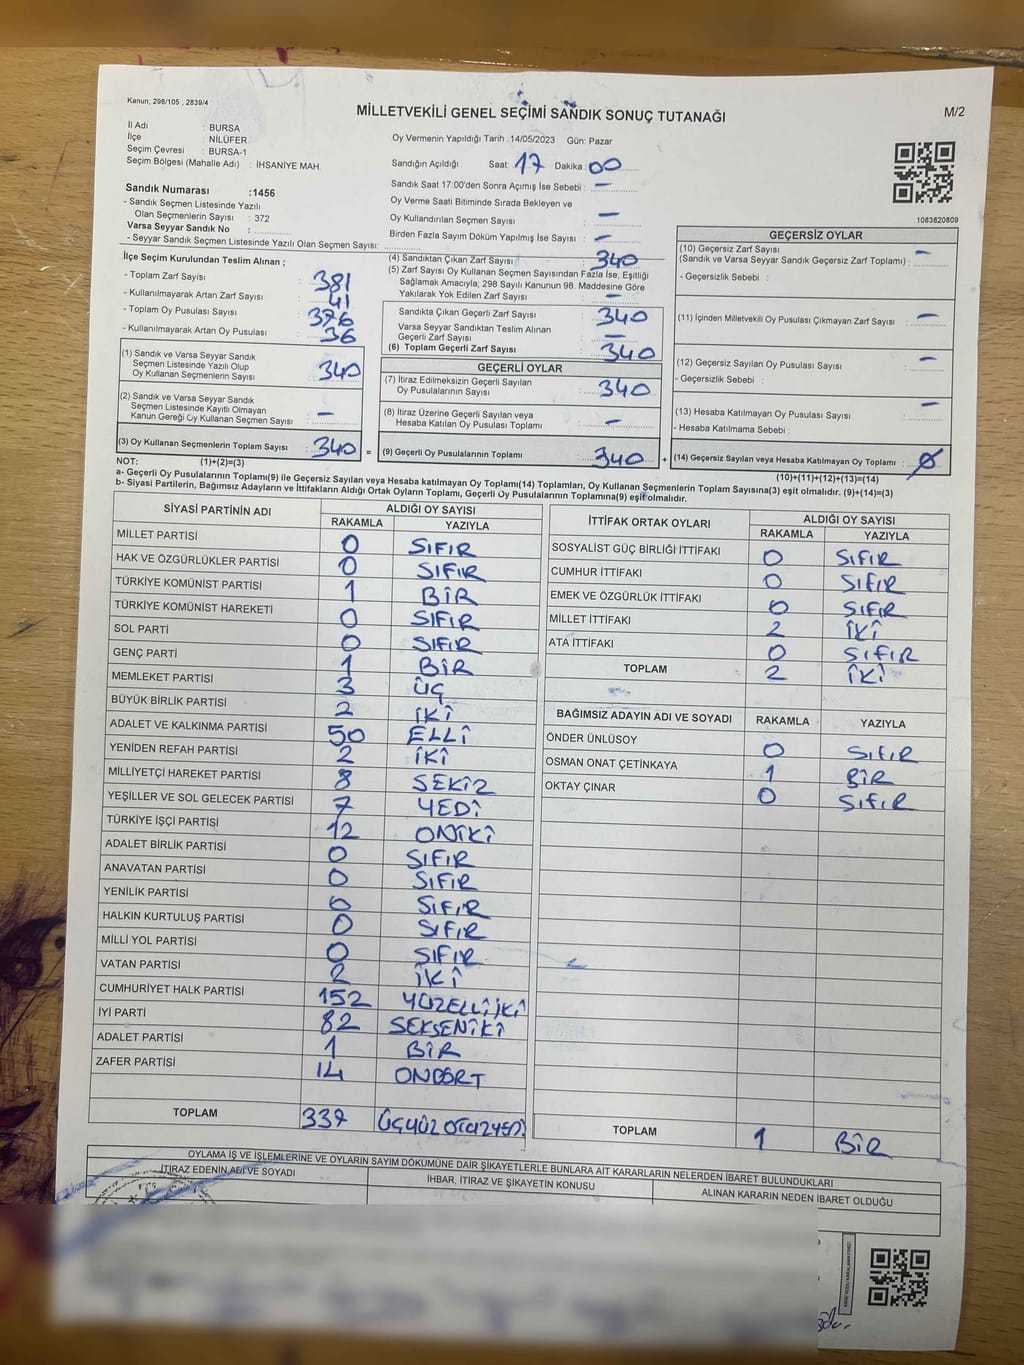 Kanun; 298/105 , 2839/4
MİLLETVEKİLİ GENEL SEÇİMİ SANDIK SONUÇ TUTANAĞI
M/2
İl Adı : BURSA
İlçe : NİLÜFER
Seçim Çevresi : BURSA-1
Seçim Bölgesi (Mahalle Adı) : İHSANİYE MAH
Oy Vermenin Yapıldığı Tarih : 14/05/2023 Gün: Pazar
Sandığın Açıldığı Saat: 17 Dakika : 00
Sandık Saat 17:00'den Sonra Açımış İse Sebebi : —
Oy Verme Saati Bitiminde Sırada Bekleyen ve
Oy Kullandırılan Seçmen Sayısı : —
Birden Fazla Sayım Döküm Yapılmış İse Sayısı : —
1083820809
Sandık Numarası :1456
- Sandık Seçmen Listesinde Yazılı
Olan Seçmenlerin Sayısı : 372
Varsa Seyyar Sandık No :
- Seyyar Sandık Seçmen Listesinde Yazılı Olan Seçmen Sayısı:
İlçe Seçim Kurulundan Teslim Alınan ;
- Toplam Zarf Sayısı : 381
- Kullanılmayarak Artan Zarf Sayısı : 41
- Toplam Oy Pusulası Sayısı : 376
- Kullanılmayarak Artan Oy Pusulası : 36
(1) Sandık ve Varsa Seyyar Sandık
Seçmen Listesinde Yazılı Olup
Oy Kullanan Seçmenlerin Sayısı : 340
(2) Sandık ve Varsa Seyyar Sandık
Seçmen Listesinde Kayıtlı Olmayan
Kanun Gereği Oy Kullanan Seçmen Sayısı : —
(3) Oy Kullanan Seçmenlerin Toplam Sayısı : 340
(4) Sandıktan Çıkan Zarf Sayısı : 340
(5) Zarf Sayısı Oy Kullanan Seçmen Sayısından Fazla İse, Eşitliği
Sağlamak Amacıyla; 298 Sayılı Kanunun 98. Maddesine Göre
Yakılarak Yok Edilen Zarf Sayısı : —
Sandıkta Çıkan Geçerli Zarf Sayısı : 340
Varsa Seyyar Sandıktan Teslim Alınan
Geçerli Zarf Sayısı : —
(6) Toplam Geçerli Zarf Sayısı : 340
GEÇERLİ OYLAR
(7) İtiraz Edilmeksizin Geçerli Sayılan
Oy Pusulalarının Sayısı : 340
(8) İtiraz Üzerine Geçerli Sayılan veya
Hesaba Katılan Oy Pusulası Toplamı : —
= (9) Geçerli Oy Pusulalarının Toplamı : 340
GEÇERSİZ OYLAR
(10) Geçersiz Zarf Sayısı
(Sandık ve Varsa Seyyar Sandık Geçersiz Zarf Toplamı) : —
- Geçersizlik Sebebi :
(11) İçinden Milletvekili Oy Pusulası Çıkmayan Zarf Sayısı : —
(12) Geçersiz Sayılan Oy Pusulası Sayısı : —
- Geçersizlik Sebebi :
(13) Hesaba Katılmayan Oy Pusulası Sayısı : —
- Hesaba Katılmama Sebebi :
+ (14) Geçersiz Sayılan veya Hesaba Katılmayan Oy Toplamı : 0
NOT: (1)+(2)=(3)
(10)+(11)+(12)+(13)=(14)
a- Geçerli Oy Pusulalarının Toplamı(9) ile Geçersiz Sayılan veya Hesaba katılmayan Oy Toplamı(14) Toplamları, Oy Kullanan Seçmenlerin Toplam Sayısına(3) eşit olmalıdır. (9)+(14)=(3)
b- Siyasi Partilerin, Bağımsız Adayların ve İttifakların Aldığı Ortak Oyların Toplamı, Geçerli Oy Pusulalarının Toplamına(9) eşit olmalıdır.
SİYASİ PARTİNİN ADI ALDIĞI OY SAYISI
RAKAMLA YAZIYLA
MİLLET PARTİSİ 0 SIFIR
HAK VE ÖZGÜRLÜKLER PARTİSİ 0 SIFIR
TÜRKİYE KOMÜNİST PARTİSİ 1 BİR
TÜRKİYE KOMÜNİST HAREKETİ 0 SIFIR
SOL PARTİ 0 SIFIR
GENÇ PARTİ 1 BİR
MEMLEKET PARTİSİ 3 ÜÇ
BÜYÜK BİRLİK PARTİSİ 2 İKİ
ADALET VE KALKINMA PARTİSİ 50 ELLİ
YENİDEN REFAH PARTİSİ 2 İKİ
MİLLİYETÇİ HAREKET PARTİSİ 8 SEKİZ
YEŞİLLER VE SOL GELECEK PARTİSİ 7 YEDİ
TÜRKİYE İŞÇİ PARTİSİ 12 ONİKİ
ADALET BİRLİK PARTİSİ 0 SIFIR
ANAVATAN PARTİSİ 0 SIFIR
YENİLİK PARTİSİ 0 SIFIR
HALKIN KURTULUŞ PARTİSİ 0 SIFIR
MİLLİ YOL PARTİSİ 0 SIFIR
VATAN PARTİSİ 2 İKİ
CUMHURİYET HALK PARTİSİ 152 YÜZELLİİKİ
İYİ PARTİ 82 SEKSENİKİ
ADALET PARTİSİ 1 BİR
ZAFER PARTİSİ 14 ONDÖRT
TOPLAM 337 ÜÇYÜZOTUZYEDİ
İTTİFAK ORTAK OYLARI ALDIĞI OY SAYISI
RAKAMLA YAZIYLA
SOSYALİST GÜÇ BİRLİĞİ İTTİFAKI 0 SIFIR
CUMHUR İTTİFAKI 0 SIFIR
EMEK VE ÖZGÜRLÜK İTTİFAKI 0 SIFIR
MİLLET İTTİFAKI 2 İKİ
ATA İTTİFAKI 0 SIFIR
TOPLAM 2 İKİ
BAĞIMSIZ ADAYIN ADI VE SOYADI RAKAMLA YAZIYLA
ÖNDER ÜNLÜSOY 0 SIFIR
OSMAN ONAT ÇETİNKAYA 1 BİR
OKTAY ÇINAR 0 SIFIR
TOPLAM 1 BİR
OYLAMA İŞ VE İŞLEMLERİNE VE OYLARIN SAYIM DÖKÜMÜNE DAİR ŞİKAYETLERLE BUNLARA AİT KARARLARIN NELERDEN İBARET BULUNDUKLARI
İTİRAZ EDENİN ADI VE SOYADI
İHBAR, İTİRAZ VE ŞİKAYETİN KONUSU
ALINAN KARARIN NEDEN İBARET OLDUĞU